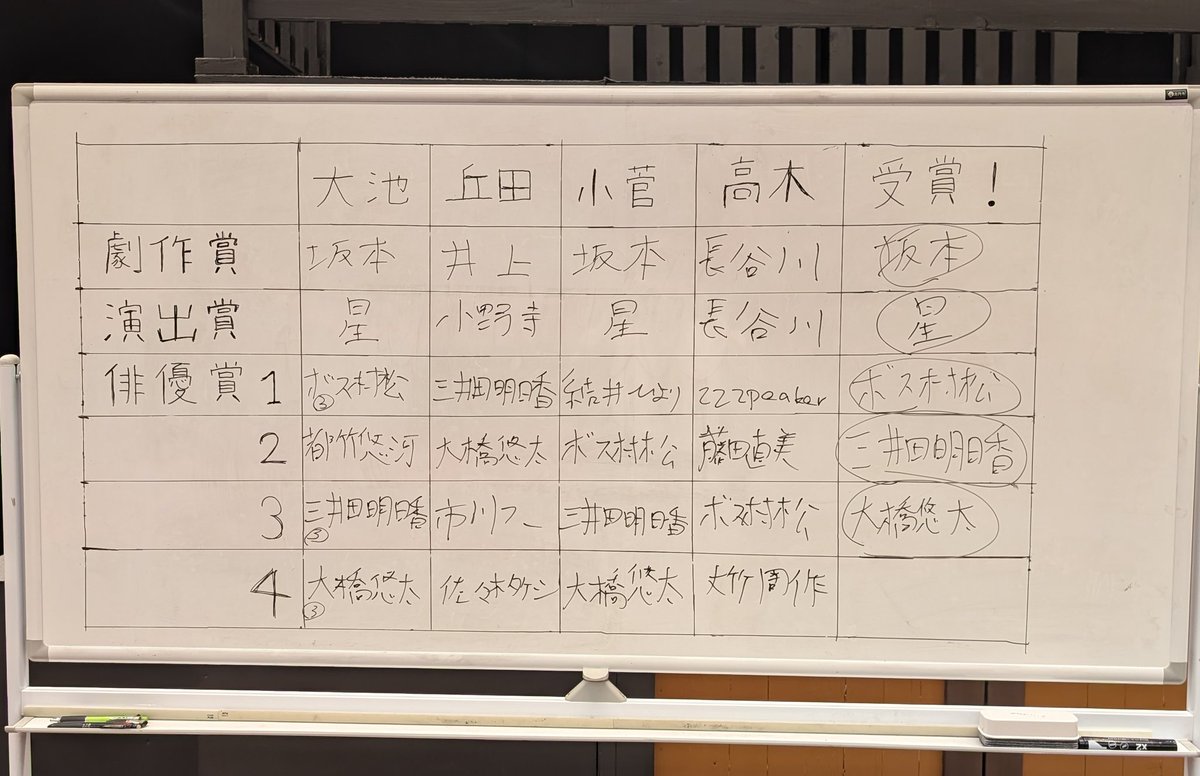 大池 丘田 小菅 高木 受賞!
劇作賞 坂本 井上 坂本 長谷川 坂本
演出賞 星 小野寺 星 長谷川 星
俳優賞 1 ボス村松 ③ 三井田明日香 結井ひより zzzpeaker ボス村松
2 都竹悠河 大橋悠太 ボス村松 藤田直美 三井田明日香
3 三井田明日香 ③ 市川フー 三井田明日香 ボス村松 大橋悠太
4 大橋悠太 ③ 佐々木タケシ 大橋悠太 丈竹周作